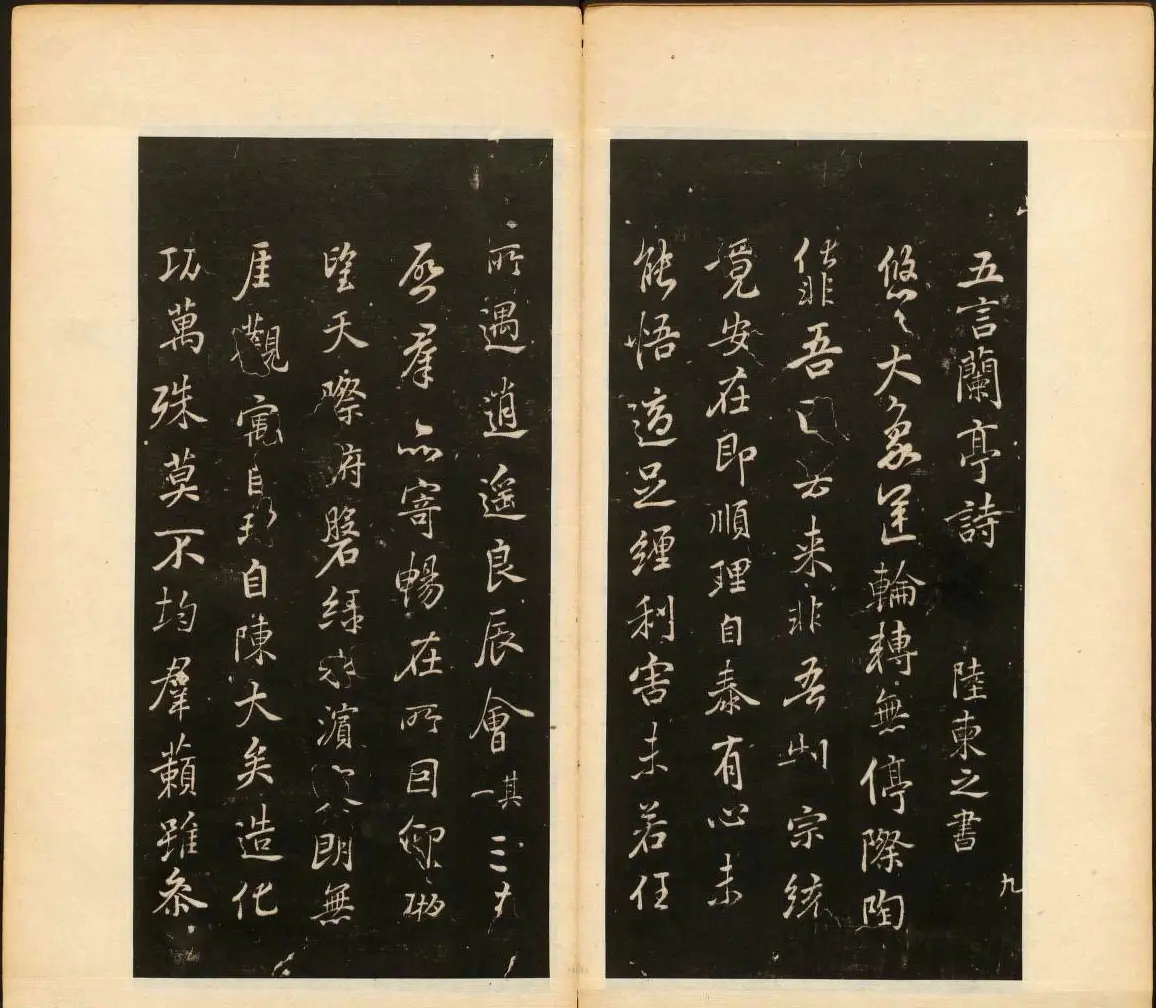 五言蘭亭詩 陸柬之書
九
悠々大象運輪轉無停際陶
化非吾因去来非吾制宗統
竟安在即順理自泰有心未
能悟適足纏利害未若任
所遇逍遥良辰會其一三春
啓羣品寄暢在所因仰眺
望天際俯磐绿水濱寥朗無
厓觀寓目理自陳大矣造化
功萬殊莫不均羣籟雖參